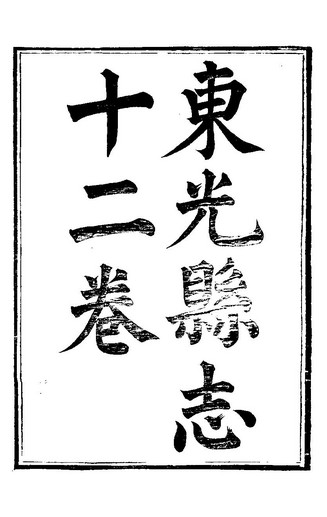 東光縣志
十二卷